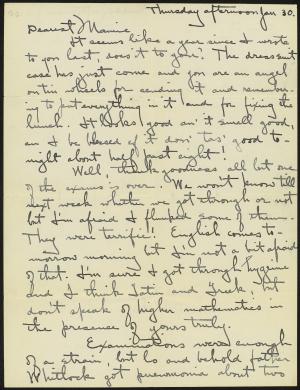 Thursday afternoon Jan 30.
Dearest Mamma,
It seems like a year since I wrote
to you last, does it to you? The dress suit
case has just come and you are an angel
on tin wheels for sending it and remember-
ing to put everything in it and for fixing the
lunch. It looks good an' it smell good,
an I be blessed if it don' tas' good to-
night about half past eight!
Well, thanks goodness all but one
of the exams is over. We won't know till
next week whether we got through or not
but I'm afraid I flunked some of them.
They were terrific! English comes to-
morrow morning but I'm not a bit afraid
of that. I'm sure I got through hygiene
and I think Latin and Greek; but
don't speak of higher mathematics in
the presence of yours truly.
Examinations were enough
of a strain, but lo and behold father
Whitlock got pneumonia about two